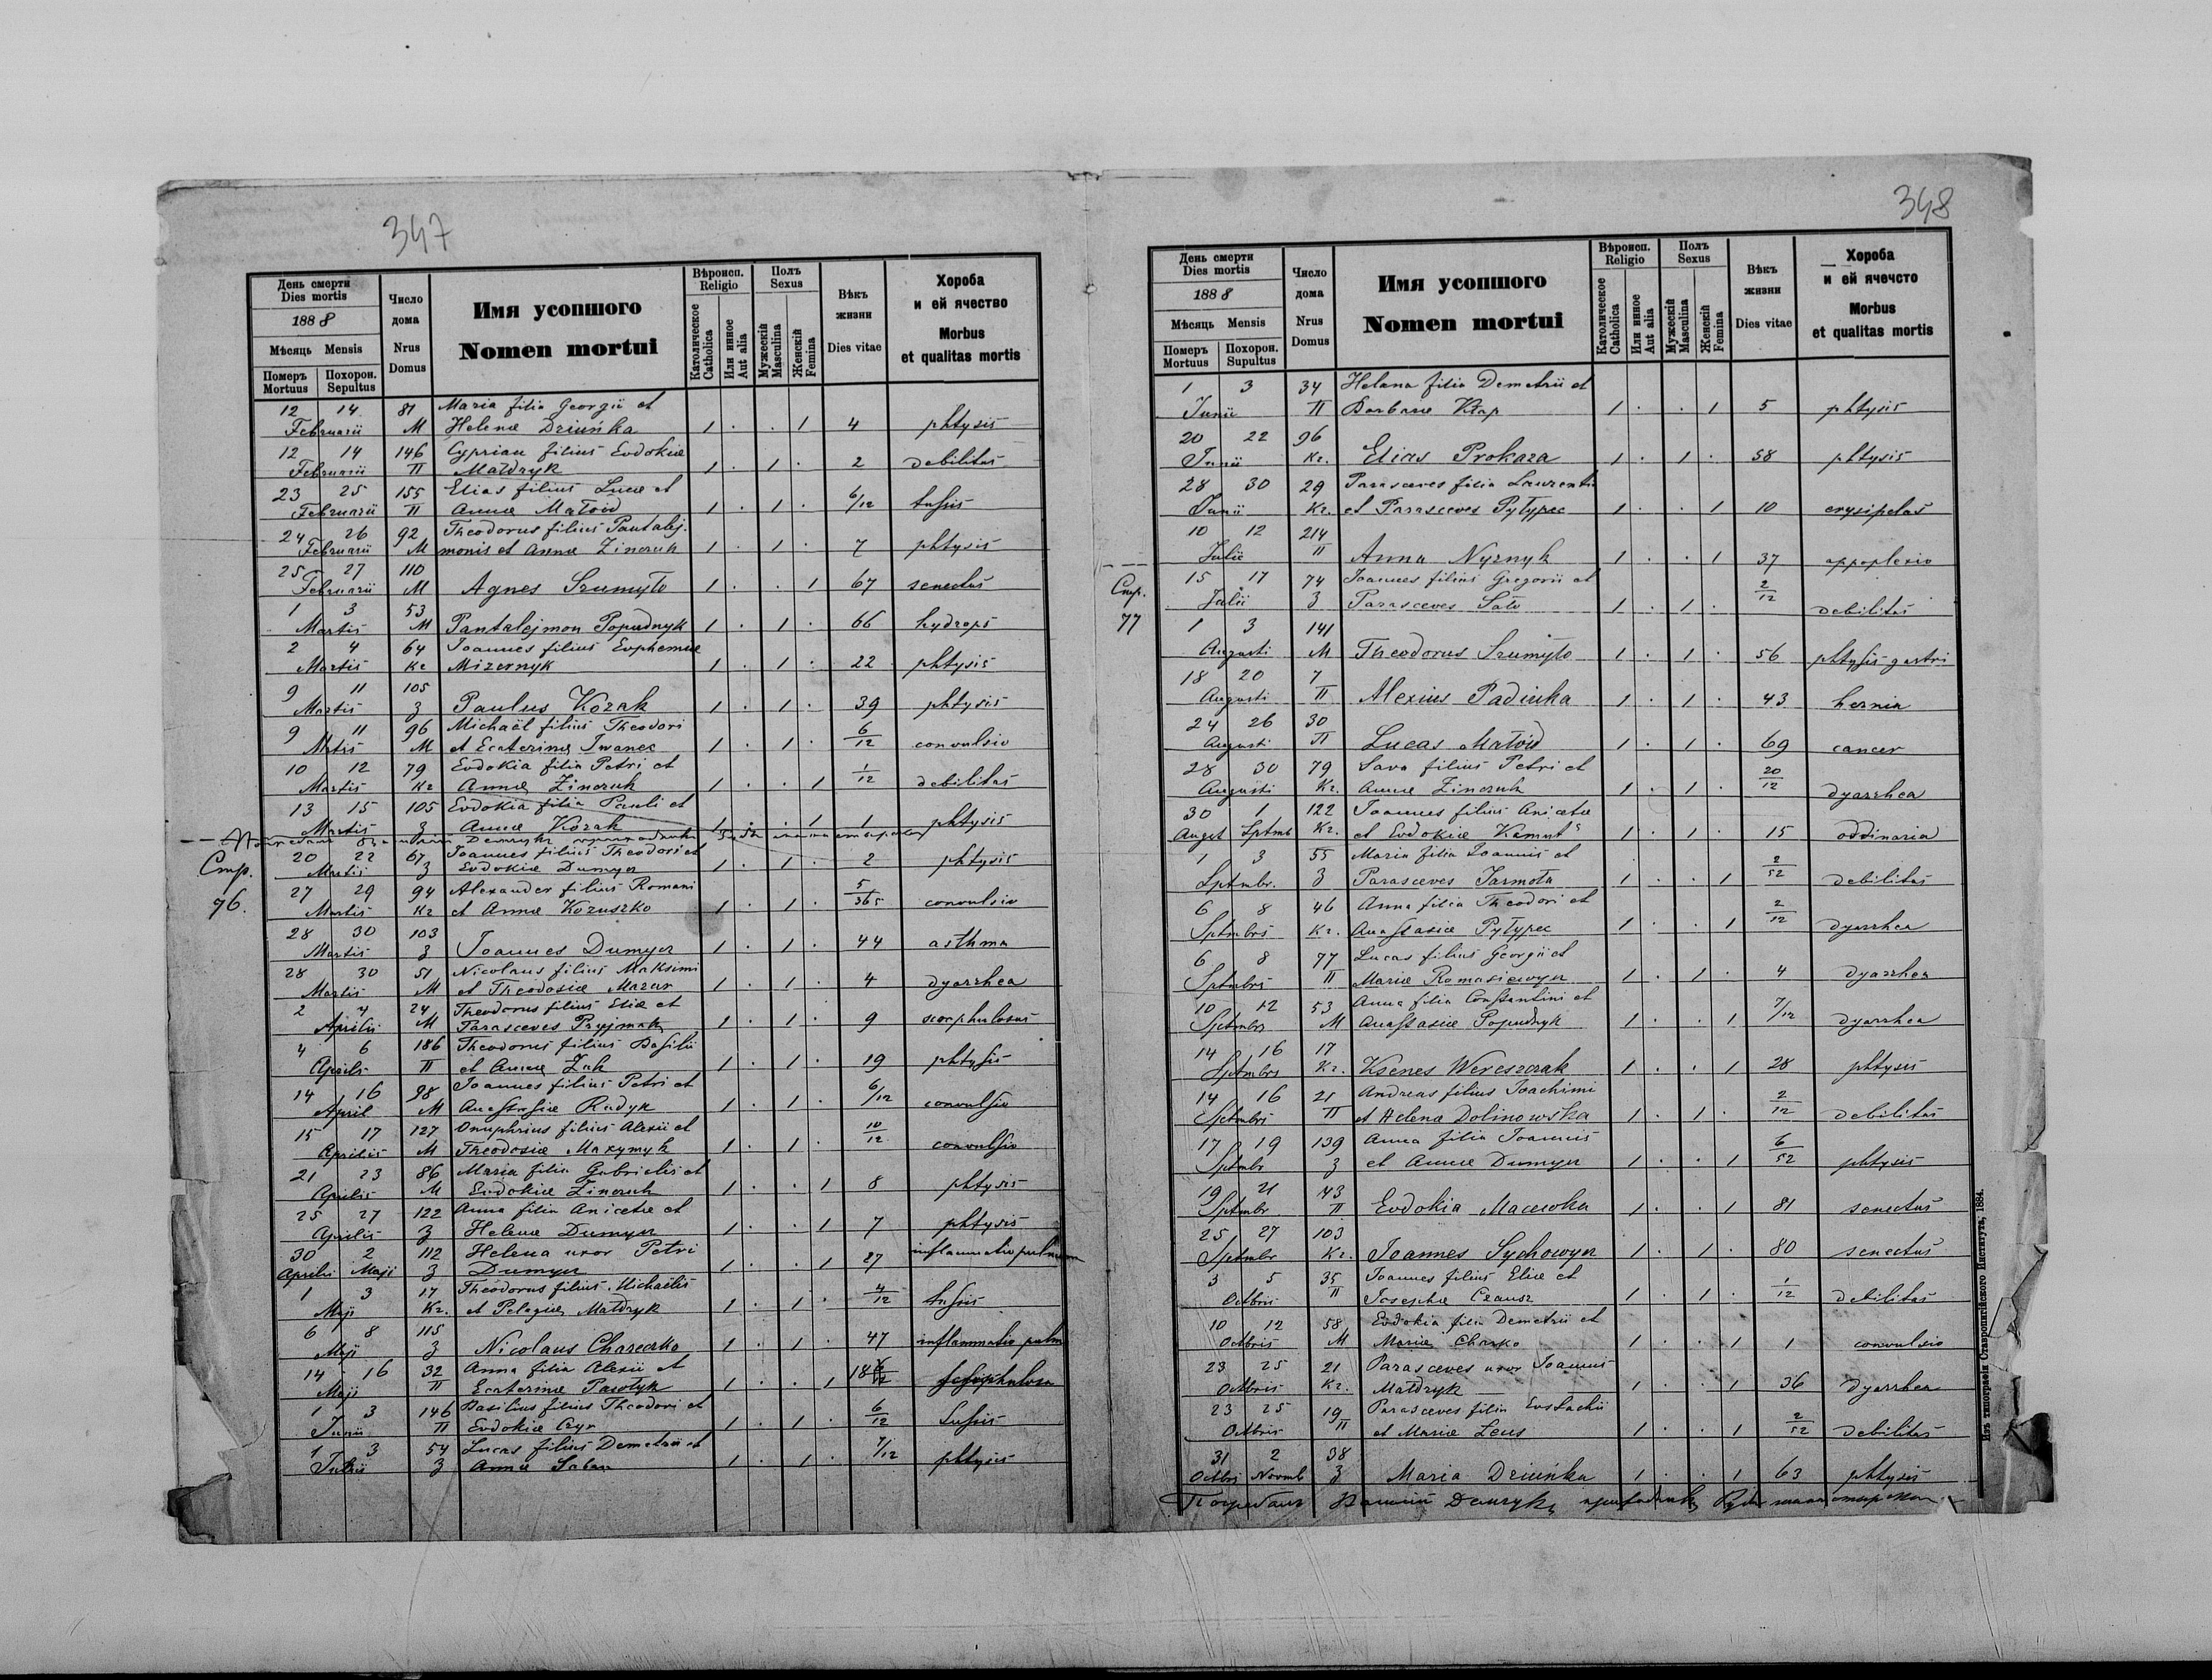 347
День смерти
Dies mortis
1888
Мѣсяць Mensis
Померъ Mortuus
Похорон. Sepultus
Число дома
Nrus Domus
Имя усопшого
Nomen mortui
Вѣроисп. Religio
Католическое Catholica
Или инное Aut alia
Полъ Sexus
Мужескій Masculina
Женскій Femina
Вѣкъ жизни
Dies vitae
Хороба
и ей ячество
Morbus
et qualitas mortis
12 14 81 Maria filia Georgii et
Februarii M Helenæ Dziuńka 1 . . 1 4 phtysis
12 14 146 Cyprian filius Evdokiæ
Februarii П Małdryk 1 . 1 . 2 debilitas
23 25 155 Elias filius Lucæ et
Februarii П Annæ Matoid 1 . 1 . 6/12 tussis
24 26 92 Theodorus filius Pantalej-
Februarii M monis et Annæ Zinczuk 1 . 1 . 7 phtysis
25 27 110
Februarii M Agnes Szumyło 1 . . 1 67 senectus
1 3 53
Martis M Pantalejmon Popudnyk 1 . 1 . 66 hydrops
2 4 64 Joannes filius Evphemiæ
Martis Kr Mizernyk 1 . 1 . 22 phtysis
9 11 105
Martis З Paulus Kozak 1 . 1 . 39 phtysis
9 11 96 Michaël filius Theodori
Mrtis M et Ecaterinæ Iwanec 1 . 1 . 6/12 convulsio
10 12 79 Evdokia filia Petri et
Martis Kr Annæ Zinczuk 1 . . 1 1/12 debilitas
13 15 105 Evdokia filia Pauli et
Martis З Annæ Kozak 1 . . 1 1 phtysis
Стр.
76.
20 22 67 Joannes filius Theodori et
Martis З Evdokiæ Dumycz 1 . 1 . 2 phtysis
27 29 94 Alexander filius Romani
Martis Kr et Annæ Kozuszko 1 . 1 . 5/365 convulsio
28 30 103
Martis З Joannes Dumycz 1 . 1 . 44 asthma
28 30 51 Nicolaus filius Maksimi
Martis M et Theodosiæ Mazur 1 . 1 . 4 dyarrhea
2 4 24 Theodorus filius Eliæ et
Aprilis M Parasceves Pryjmak 1 . 1 . 9 scorphulosus
4 6 186 Theodorus filius Basilii
Aprilis П et Annæ Żuk 1 . 1 . 19 phtysis
14 16 98 Joannes filius Petri et
April M Anastasiæ Rudyk 1 . 1 . 6/12 convulsio
15 17 127 Onuphrius filius Alexii et
Aprilis M Theodosiæ Maxymyk 1 . 1 . 10/12 convulsio
21 23 86 Maria filia Gabrielis et
Aprilis M Evdokiæ Zinczuk 1 . . 1 8 phtysis
25 27 122 Anna filia Anicetæ et
Aprilis З Helenæ Dumycz 1 . . 1 7 phtysis
30 2 112 Helena uxor Petri
Aprilis Maji З Dumycz 1 . . 1 27 inflammatio pulmon
1 3 17 Theodorus filius Michaëlis
Maji Kr. et Pelagiæ Małdryk 1 . 1 . 4/12 tussis
6 8 115
Maji З Nicolaus Chareczko 1 . 1 . 47 inflammatio pulm
14 16 32 Anna filia Alexii et
Maji П Ecaterinæ Pawłyk 1 . . 1 18
1 3 146 Basilius filius Theodori et
Junii П Evdokiæ Czyr 1 . 1 . 6/12 tussis
1 3 54 Lucas filius Demetrii et
З Annæ 1 . 1 . 7/12 phtysis
348
День смерти
Dies mortis
1888
Мѣсяць Mensis
Померъ Mortuus
Похорон. Supultus
Число дома
Nrus Domus
Имя усопшого
Nomen mortui
Вѣроисп. Religio
Католическое Catholica
Или инное Aut alia
Полъ Sexus
Мужескій Masculina
Женскій Femina
Вѣкъ жизни
Dies vitae
Хороба
и ей ячечсто
Morbus
et qualitas mortis
1 3 34 Helana filia Demetrii et
Junii П Barbaræ Kłap 1 . . 1 5 phtysis
20 22 96
Junii Kr. Elias Prokaza 1 . 1 . 58 phtysis
28 30 29 Parasceves filia Laurentii
Junii Kr. et Parasceves Pyłypec 1 . . 1 10 erysipelas
10 12 214
Julii П Anna Nyrnyk 1 . . 1 37 appoplexio
Стр.
77
15 17 74 Joannes filius Gregorii et
Julii З Parasceves Sało 1 . 1 . 2/12 debilitas
1 3 141
Augusti M Theodorus Szumyło 1 . 1 . 56 phtysis gastri
18 20 7
Augusti П Alexius Padiuka 1 . 1 . 43 hernia
24 26 30
Augusti П Lucas Matoid 1 . 1 . 69 cancer
28 30 79 Sava filius Petri et
Augusti Kr. Annæ Zinczuk 1 . 1 . 20/12 dyarrhea
30 1 122 Joannes filius Anicetæ
Augst Sptmb Kr. et Evdokiæ Kamut 1 . 1 . 15 oddinaria
1 3 55 Maria filia Joannis et
Sptmbr. З Parasceves Jarmoła 1 . . 1 2/52 debilitas
6 8 46 Anna filia Theodori et
Sptmbris Kr. Anastasiæ Pyłypec 1 . . 1 2/12 dyarrhea
6 8 77 Lucas filius Georgii et
Sptmbris П Mariæ Romasiewycz 1 . 1 . 4 dyarrhea
10 12 53 Anna filia Constantini et
Sptmbrs M Anastasiæ Popudnyk 1 . . 1 7/12 dyarrhea
14 16 17
Sptmbrs Kr. Ksenes Wereszczak 1 . . 1 28 phtysis
14 16 21 Andreas filius Joachimi
Sptmbri П et Helena Dolinowska 1 . 1 . 2/12 debilitas
17 19 139 Anna filia Joannis
Sptmbr З et Annæ Dumycz 1 . . 1 6/52 phtysis
19 21 43
Sptmbr П Evdokia Macewka 1 . . 1 81 senectus
25 27 103
Sptmbr Kr. Joannes Sychowycz 1 . 1 . 80 senectus
3 5 35 Joannes filius Eliæ et
Octbris П Josephæ Czausz 1 . 1 . 1/12 debilitas
10 12 58 Evdokia filia Demetrii et
Octbris M Mariæ Charko 1 . . 1 1 convulsio
23 25 21 Parasceves uxor Joannis
Octbris Kr. Małdryk 1 . . 1 36 dyarrhea
23 25 19 Parasceves filia Eustachii
Octbris П et Mariæ Leus 1 . . 1 2/52 debilitas
31 2 38
Octbris Novmb З Maria Dziuńka 1 . . 1 63 phtysis
Изъ типографіи Ставропигійского Института, 1884.